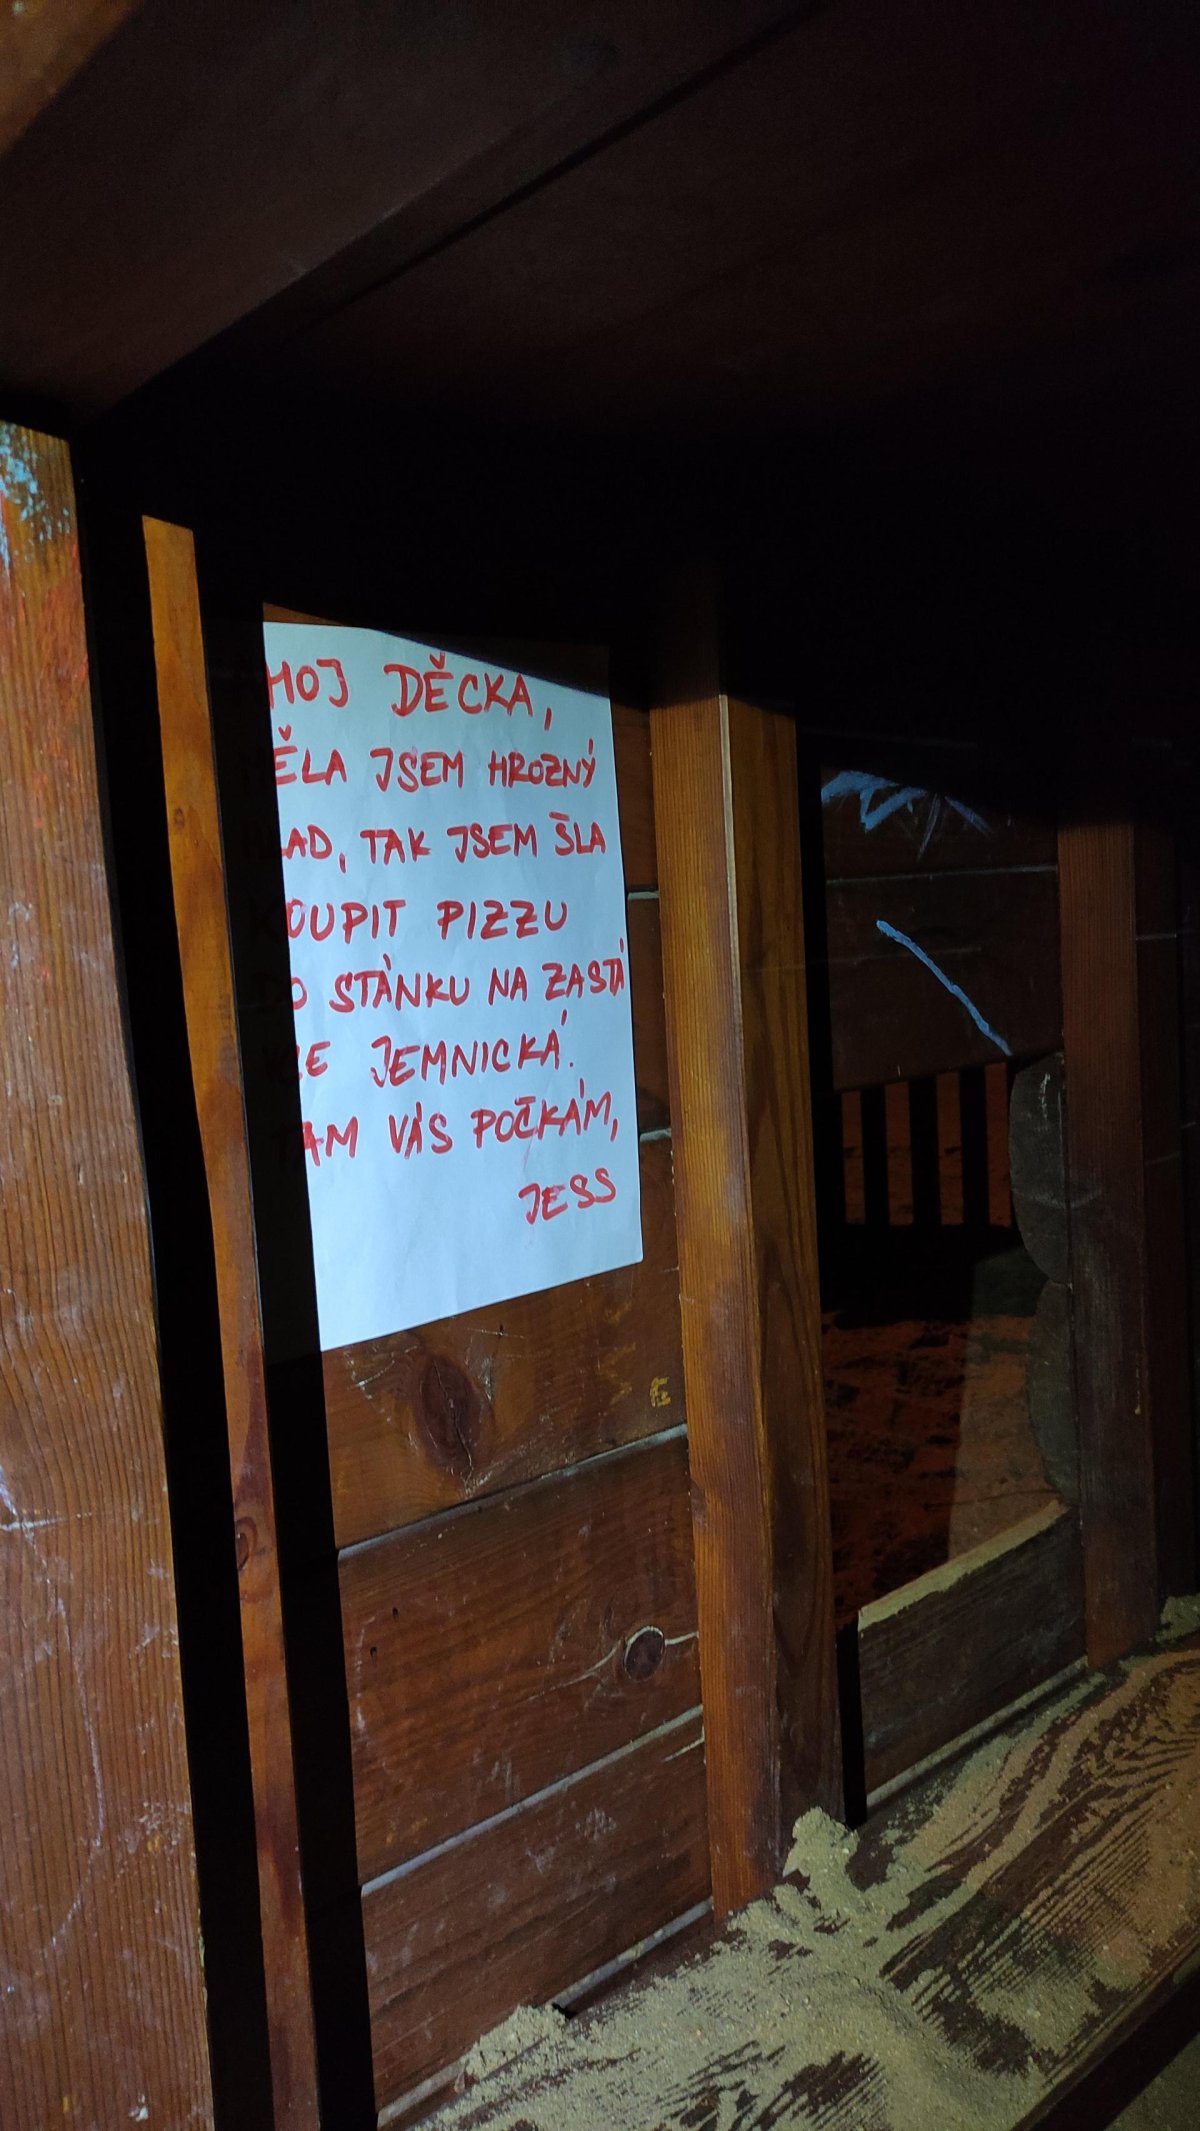 AHOJ DĚCKA,
MĚLA JSEM HROZNÝ
HLAD, TAK JSEM ŠLA
KOUPIT PIZZU
DO STÁNKU NA ZASTÁ
VCE JEMNICKÁ.
TAM VÁS POČKÁM,
JESS